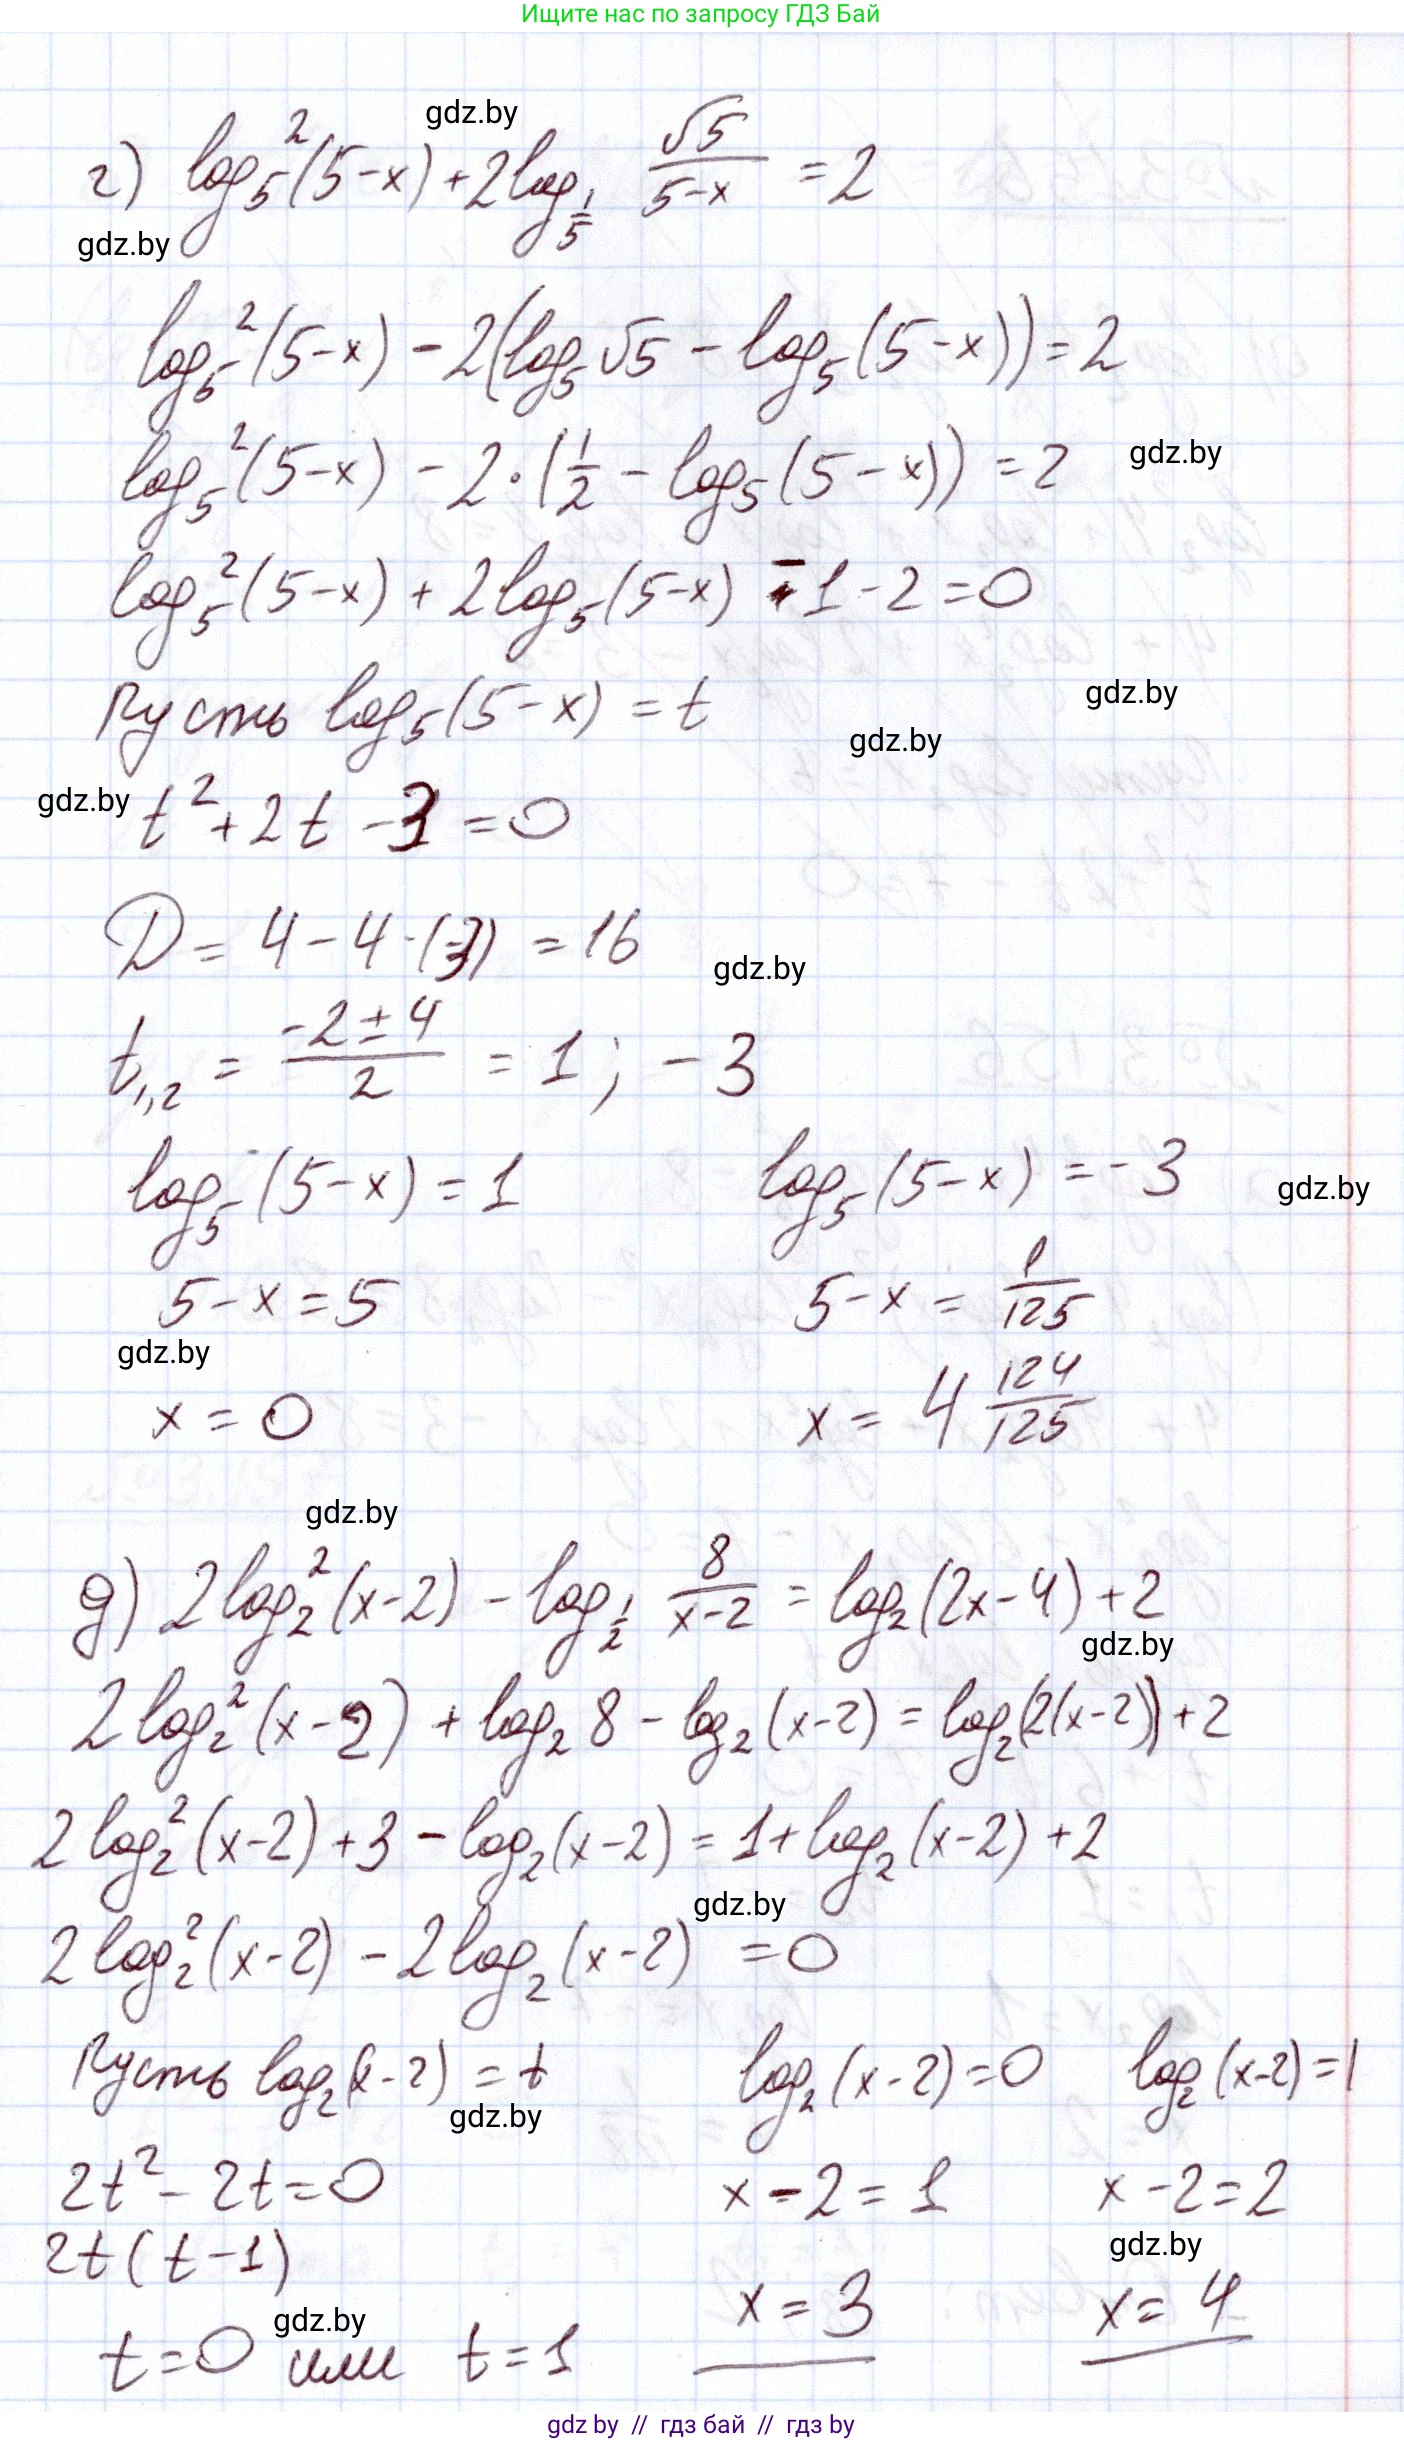 Ищите нас по запросу ГДЗ Бай
gdz.by
г) log₅²(5-x) + 2log_{1/5} √5/(5-x) = 2
gdz.by
log₅²(5-x) - 2(log₅√5 - log₅(5-x)) = 2
log₅²(5-x) - 2·(1/2 - log₅(5-x)) = 2
gdz.by
log₅²(5-x) + 2log₅(5-x) - 1 - 2 = 0
Пусть log₅(5-x) = t
gdz.by
gdz.by
gdz.by
t² + 2t - 3 = 0
D = 4 - 4·(-3) = 16
gdz.by
t₁,₂ = (-2±4)/2 = 1; -3
log₅(5-x) = 1 log₅(5-x) = -3
gdz.by
5-x = 5 5-x = 1/125
gdz.by
x = 0 x = 4 124/125
gdz.by
д) 2log₂²(x-2) - log_{1/2} 8/(x-2) = log₂(2x-4) + 2
gdz.by
2log₂²(x-2) + log₂8 - log₂(x-2) = log₂(2(x-2)) + 2
2log₂²(x-2) + 3 - log₂(x-2) = 1 + log₂(x-2) + 2
gdz.by
2log₂²(x-2) - 2log₂(x-2) = 0
Пусть log₂(x-2) = t log₂(x-2) = 0 log₂(x-2) = 1
gdz.by
2t² - 2t = 0 x-2 = 1 x-2 = 2
gdz.by
2t(t-1)
x = 3 x = 4
gdz.by
t = 0 или t = 1
gdz by // гдз бай // гдз by